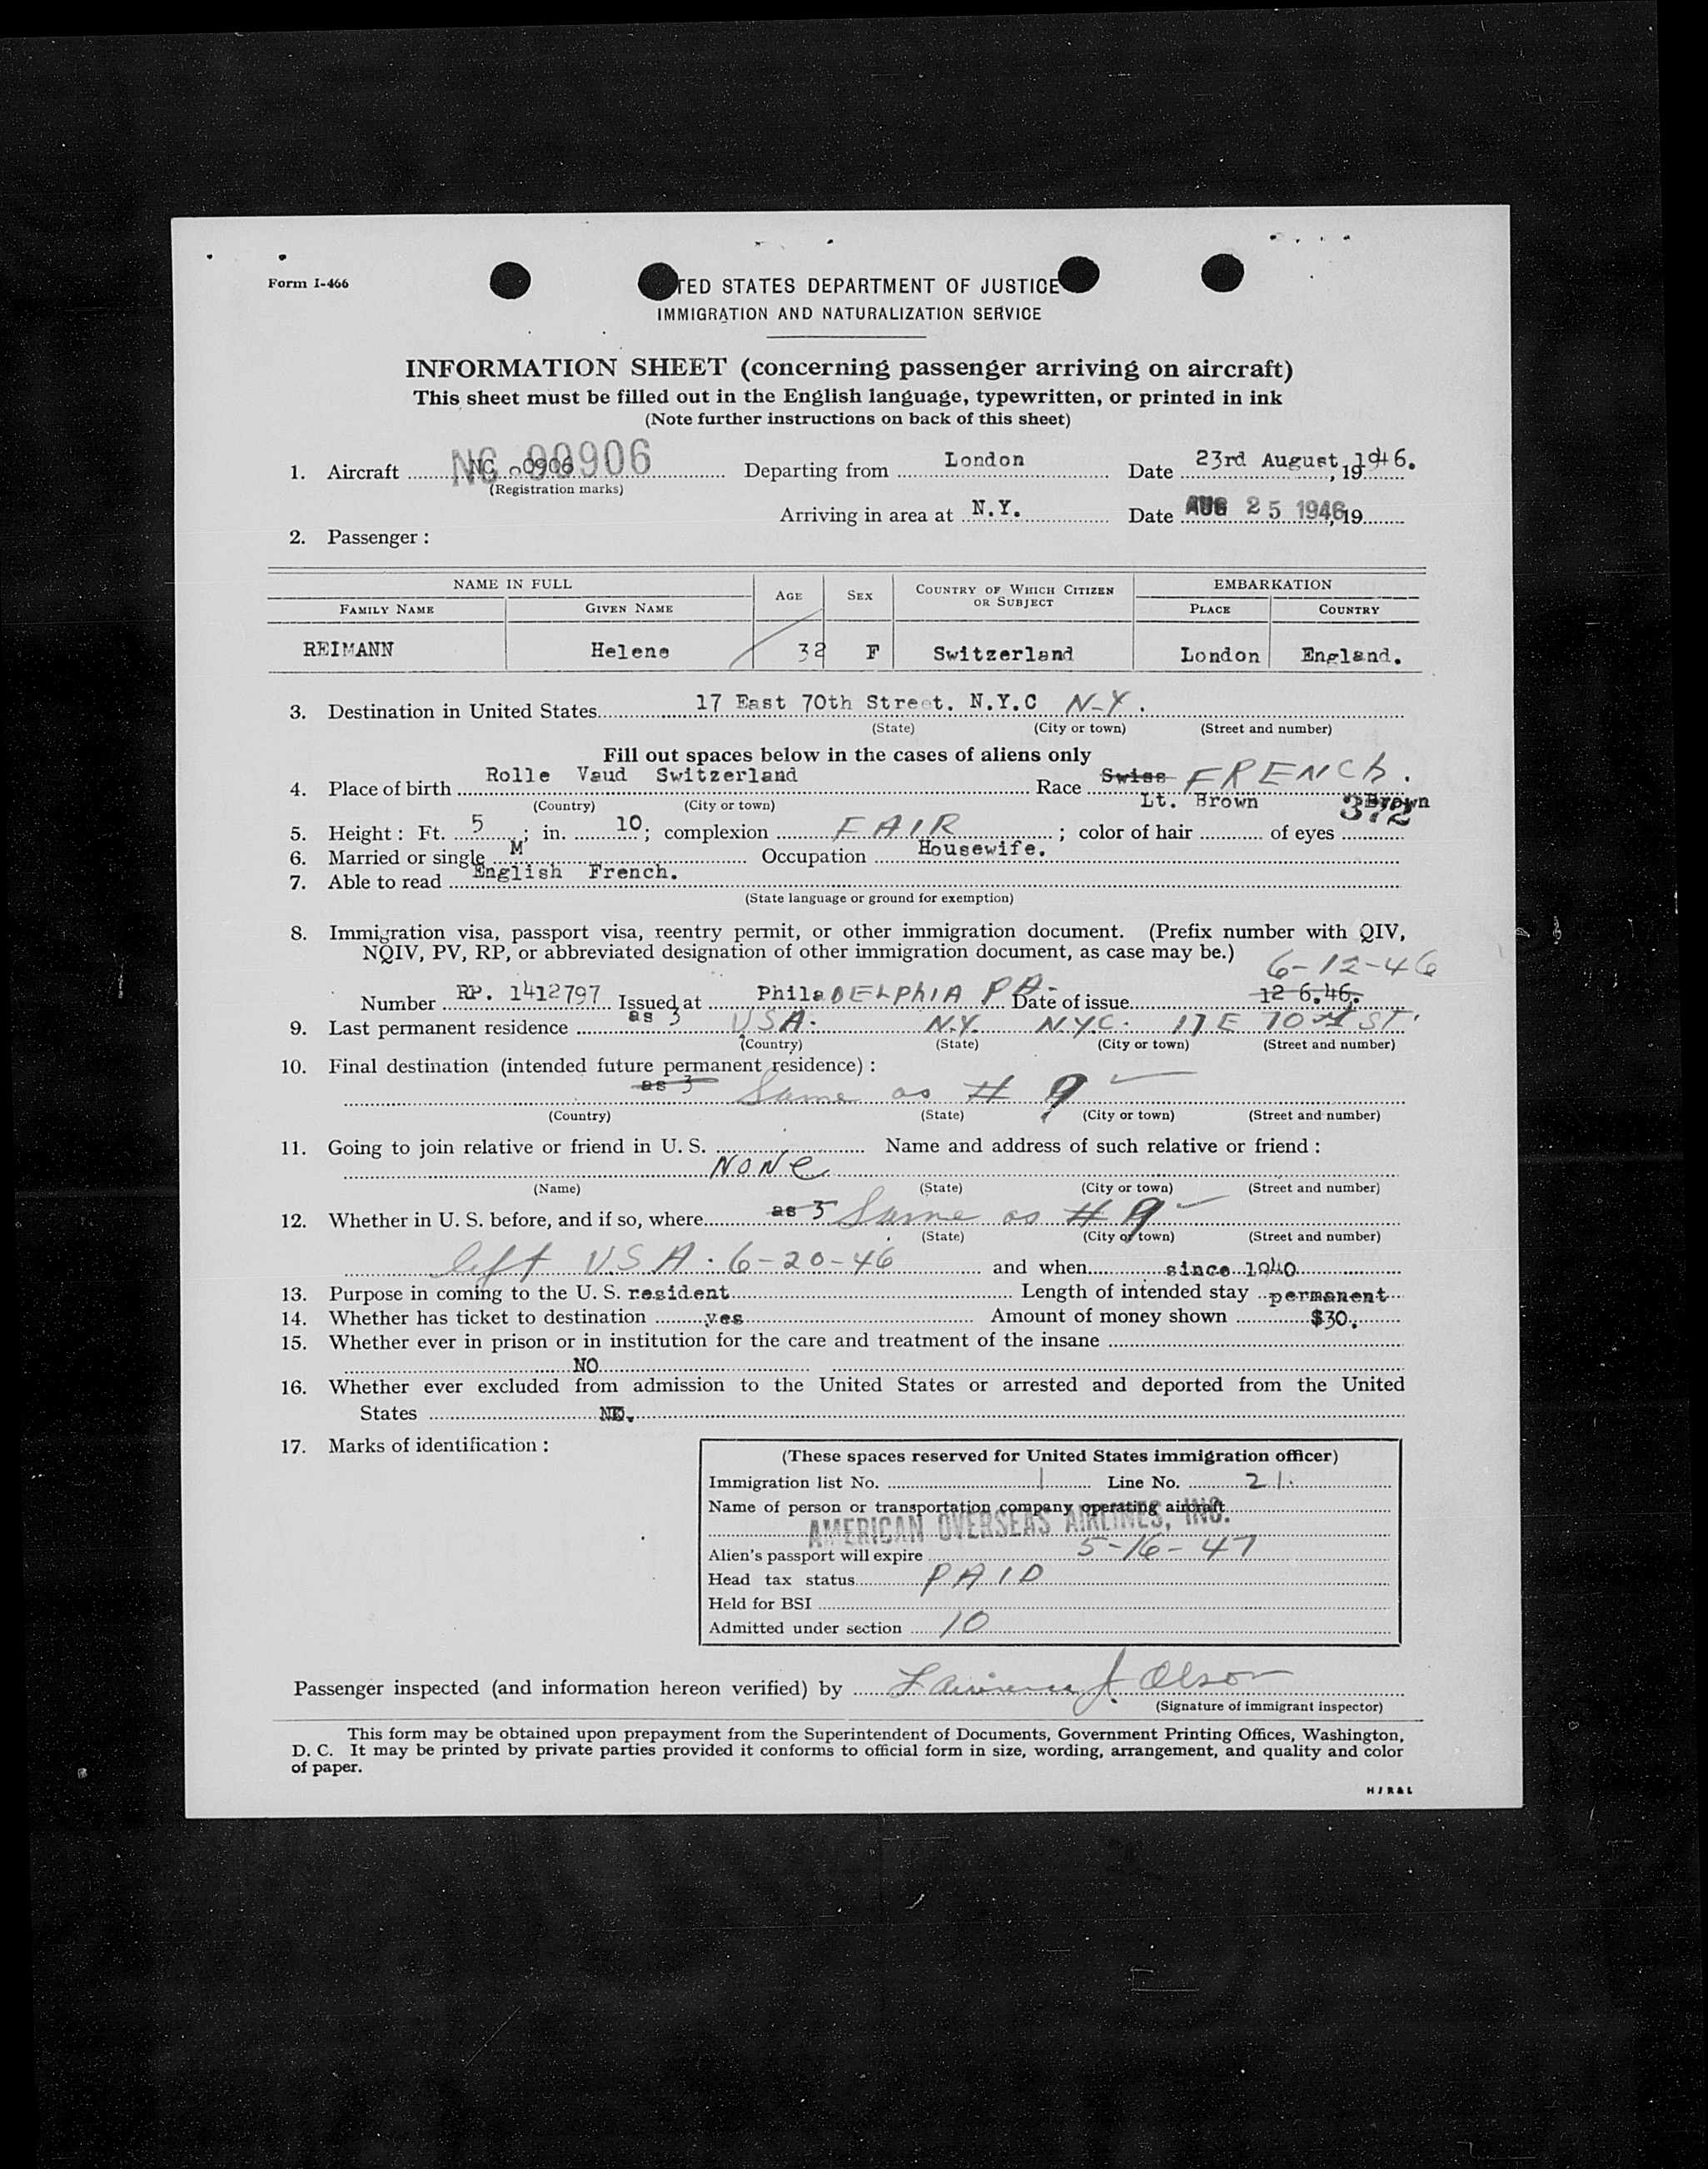 Form I-466
TED STATES DEPARTMENT OF JUSTICE
IMMIGRATION AND NATURALIZATION SERVICE
INFORMATION SHEET (concerning passenger arriving on aircraft)
This sheet must be filled out in the English language, typewritten, or printed in ink
(Note further instructions on back of this sheet)
1. Aircraft NC 90906 NC 00906 Departing from London Date 23rd August, 19 1946.
(Registration marks)
Arriving in area at N.Y. Date AUG 25 1946, 19
2. Passenger:
NAME IN FULL AGE SEX COUNTRY OF WHICH CITIZEN OR SUBJECT EMBARKATION
FAMILY NAME GIVEN NAME PLACE COUNTRY
REIMANN Helene 32 F Switzerland London England.
3. Destination in United States 17 East 70th Street. N.Y.C N-Y.
(State) (City or town) (Street and number)
Fill out spaces below in the cases of aliens only
4. Place of birth Rolle Vaud Switzerland Race Swiss FRENCH.
(Country) (City or town)
Lt. Brown Brown 372
5. Height: Ft. 5; in. 10; complexion FAIR; color of hair of eyes
6. Married or single M Occupation Housewife.
7. Able to read English French.
(State language or ground for exemption)
8. Immigration visa, passport visa, reentry permit, or other immigration document. (Prefix number with QIV,
NQIV, PV, RP, or abbreviated designation of other immigration document, as case may be.)
6-12-46
Number RP. 1412797 Issued at PhilaDELPHIA PA. Date of issue 12 6.46.
9. Last permanent residence as 3 USA. N.Y. N.Y.C. 17 E 70th ST.
(Country) (State) (City or town) (Street and number)
10. Final destination (intended future permanent residence):
as 3 Same as # 9
(Country) (State) (City or town) (Street and number)
11. Going to join relative or friend in U. S. Name and address of such relative or friend:
NONE
(Name) (State) (City or town) (Street and number)
12. Whether in U. S. before, and if so, where as 3 Same as # 9
(State) (City or town) (Street and number)
left USA. 6-20-46 and when since 1940
13. Purpose in coming to the U. S. resident Length of intended stay permanent
14. Whether has ticket to destination yes Amount of money shown $30.
15. Whether ever in prison or in institution for the care and treatment of the insane
NO
16. Whether ever excluded from admission to the United States or arrested and deported from the United
States NO.
17. Marks of identification:
(These spaces reserved for United States immigration officer)
Immigration list No. 1 Line No. 21.
Name of person or transportation company operating aircraft
AMERICAN OVERSEAS AIRLINES, INC.
Alien's passport will expire 5-16-47
Head tax status PAID
Held for BSI
Admitted under section 10
Passenger inspected (and information hereon verified) by Lawrence J. Olson
(Signature of immigrant inspector)
This form may be obtained upon prepayment from the Superintendent of Documents, Government Printing Offices, Washington,
D. C. It may be printed by private parties provided it conforms to official form in size, wording, arrangement, and quality and color
of paper.
H J R & L